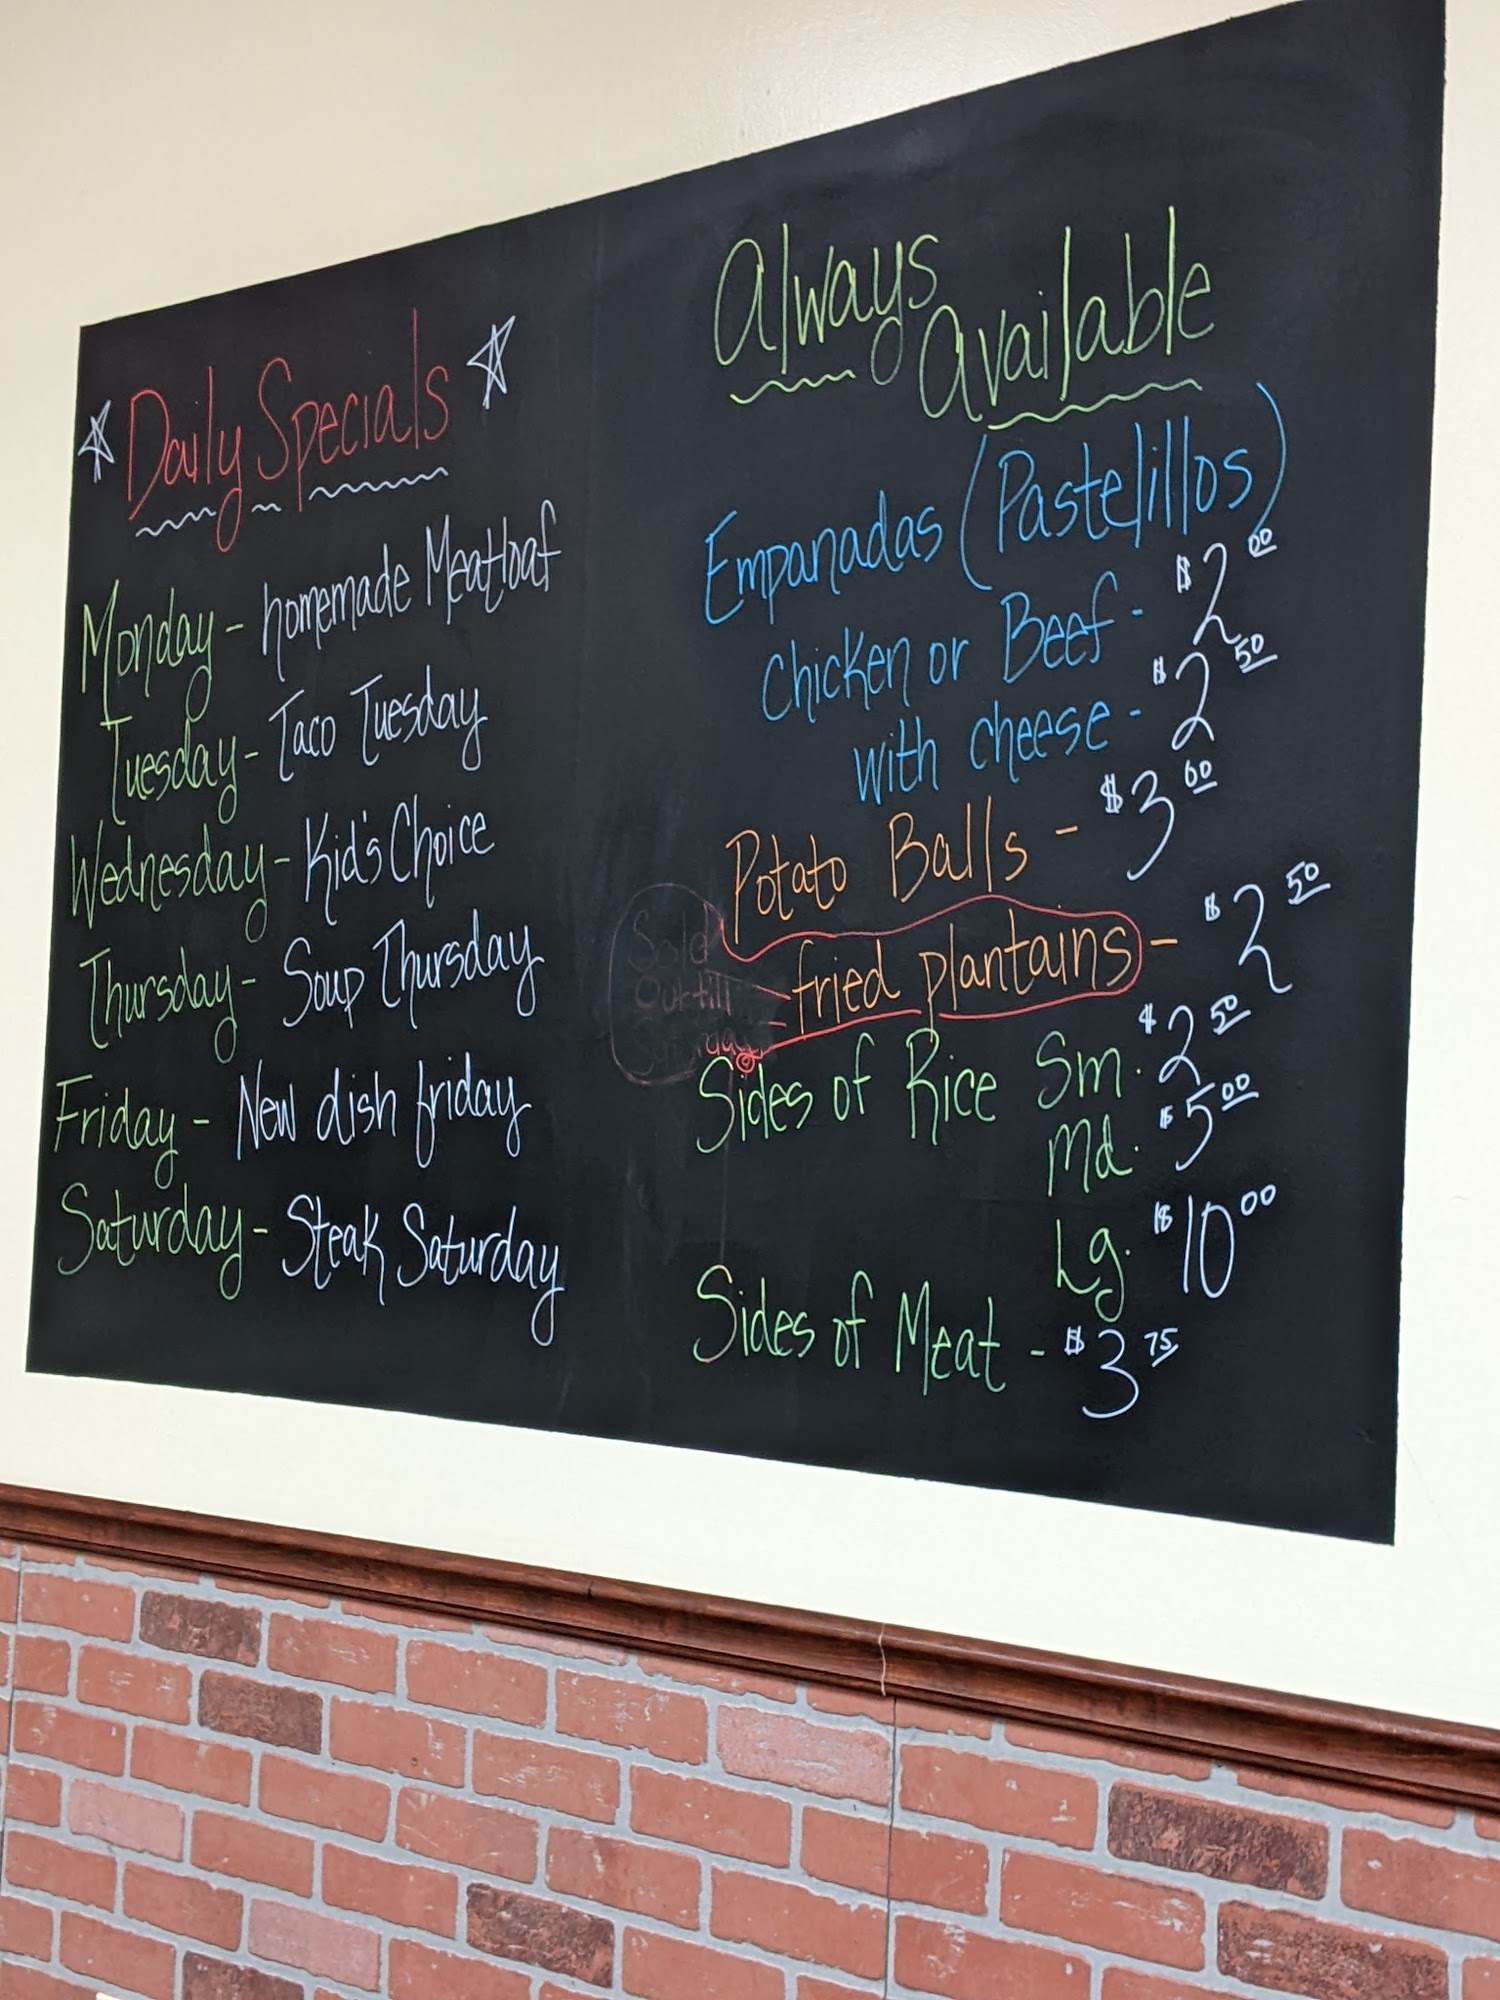 Daily Specials
Monday - homemade Meatloaf
Tuesday - Taco Tuesday
Wednesday - Kid's Choice
Thursday - Soup Thursday
Friday - New dish friday
Saturday - Steak Saturday
Always
Available
Empanadas (Pastelillos)
Chicken or Beef - $2.00
with cheese - $2.50
Potato Balls - $3.00
Sold
Out till
Saturday
fried plantains - $2.50
Sides of Rice Sm. $2.50
Md. $5.00
Lg. $10.00
Sides of Meat - $3.75